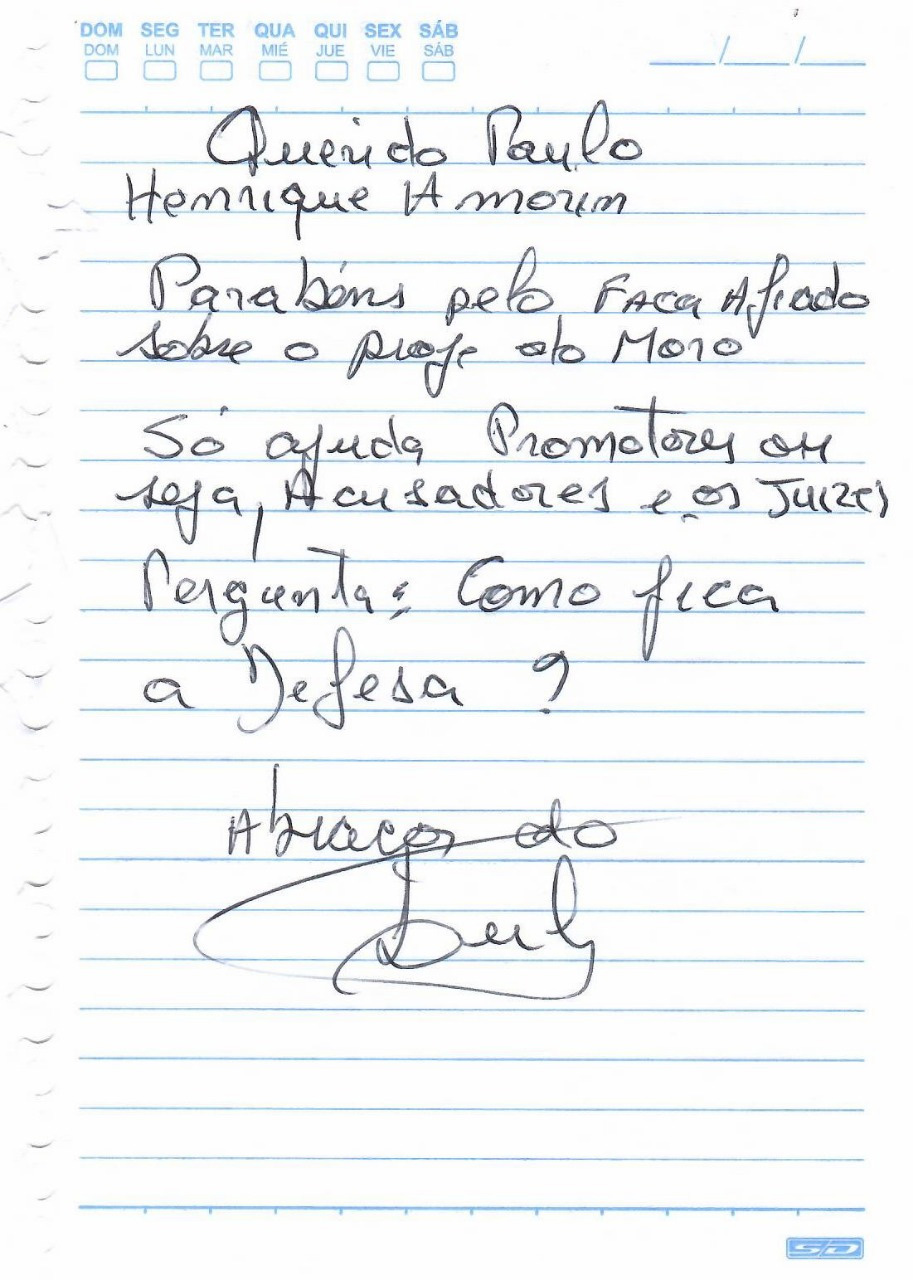 DOM SEG TER QUA QUI SEX SÁB
DOM LUN MAR MIÉ JUE VIE SÁB
___/___/___
Querido Paulo
Henrique Amorim
Parabéns pelo Faca Afiado
sobre o proje do Moro
Só ajuda Promotores ou
seja, Acusadores e os Juizes
Pergunta: Como fica
a Defesa ?
Abraços do
SD